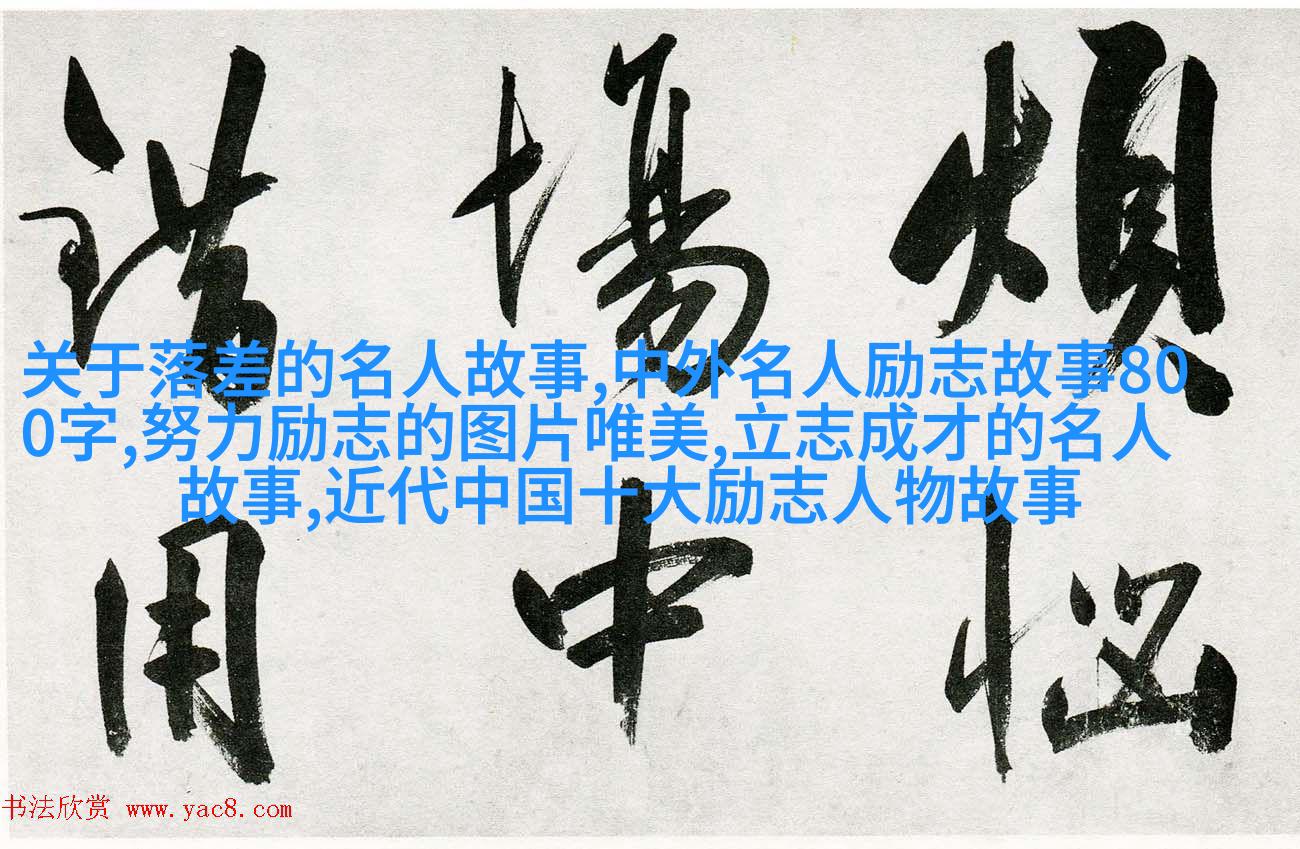 煩惱
場中
用
关于落差的名人故事,中外名人励志故事80
0字,努力励志的图片唯美,立志成才的名人
故事,近代中国十大励志人物故事
书法欣赏 www.yac8.com